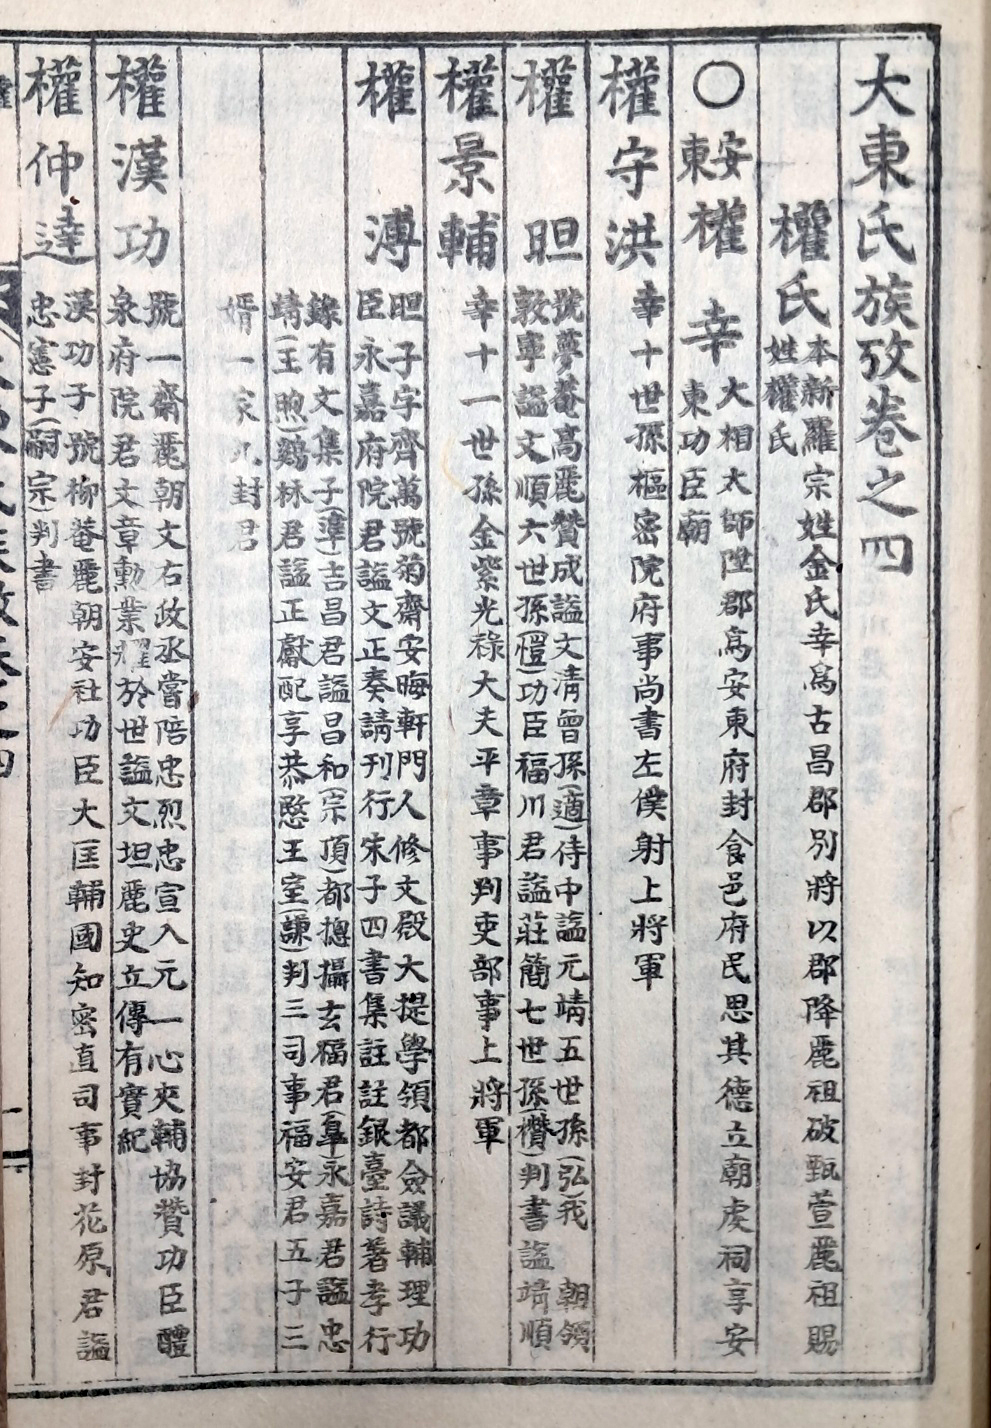 大東氏族攷卷之四
權氏
本新羅宗姓金氏幸爲古昌郡別將以郡降麗祖破甄萱麗祖賜
姓權氏
○安東權
幸
大相大師陞郡爲安東府封食邑府民思其德立廟虔祠享安
東功臣廟
權守洪
幸十世孫樞密院府事尚書左僕射上將軍
權㫜
號夢菴高麗贊成謚文淸曾孫(適)侍中謚元靖五世孫(弘)我 朝領
敦寧謚文順六世孫(愷)功臣福川君謚莊簡七世孫(攢)判書謚靖順
權景輔
幸十一世孫金紫光祿大夫平章事判吏部事上將軍
權溥
㫜子字齊萬號菊齋安晦軒門人修文殿大提學領都僉議輔理功
臣永嘉府院君謚文正奏請刊行朱子四書集註註銀臺詩著孝行
錄有文集子(準)吉昌君謚昌和(宗頂)都摠攝玄福君(皐)永嘉君謚忠
靖(王煦)鷄林君謚正獻配享恭愍王室(謙)判三司事福安君五子三
婿一家九封君
權漢功
號一齋麗朝文右政丞嘗陪忠烈忠宣入元一心夾輔協贊功臣醴
泉府院君文章勳業耀於世謚文坦麗史立傳有實紀
權仲達
漢功子號柳菴麗朝安社功臣大匡輔國知密直司事封花原君謚
忠憲子(嗣宗)判書